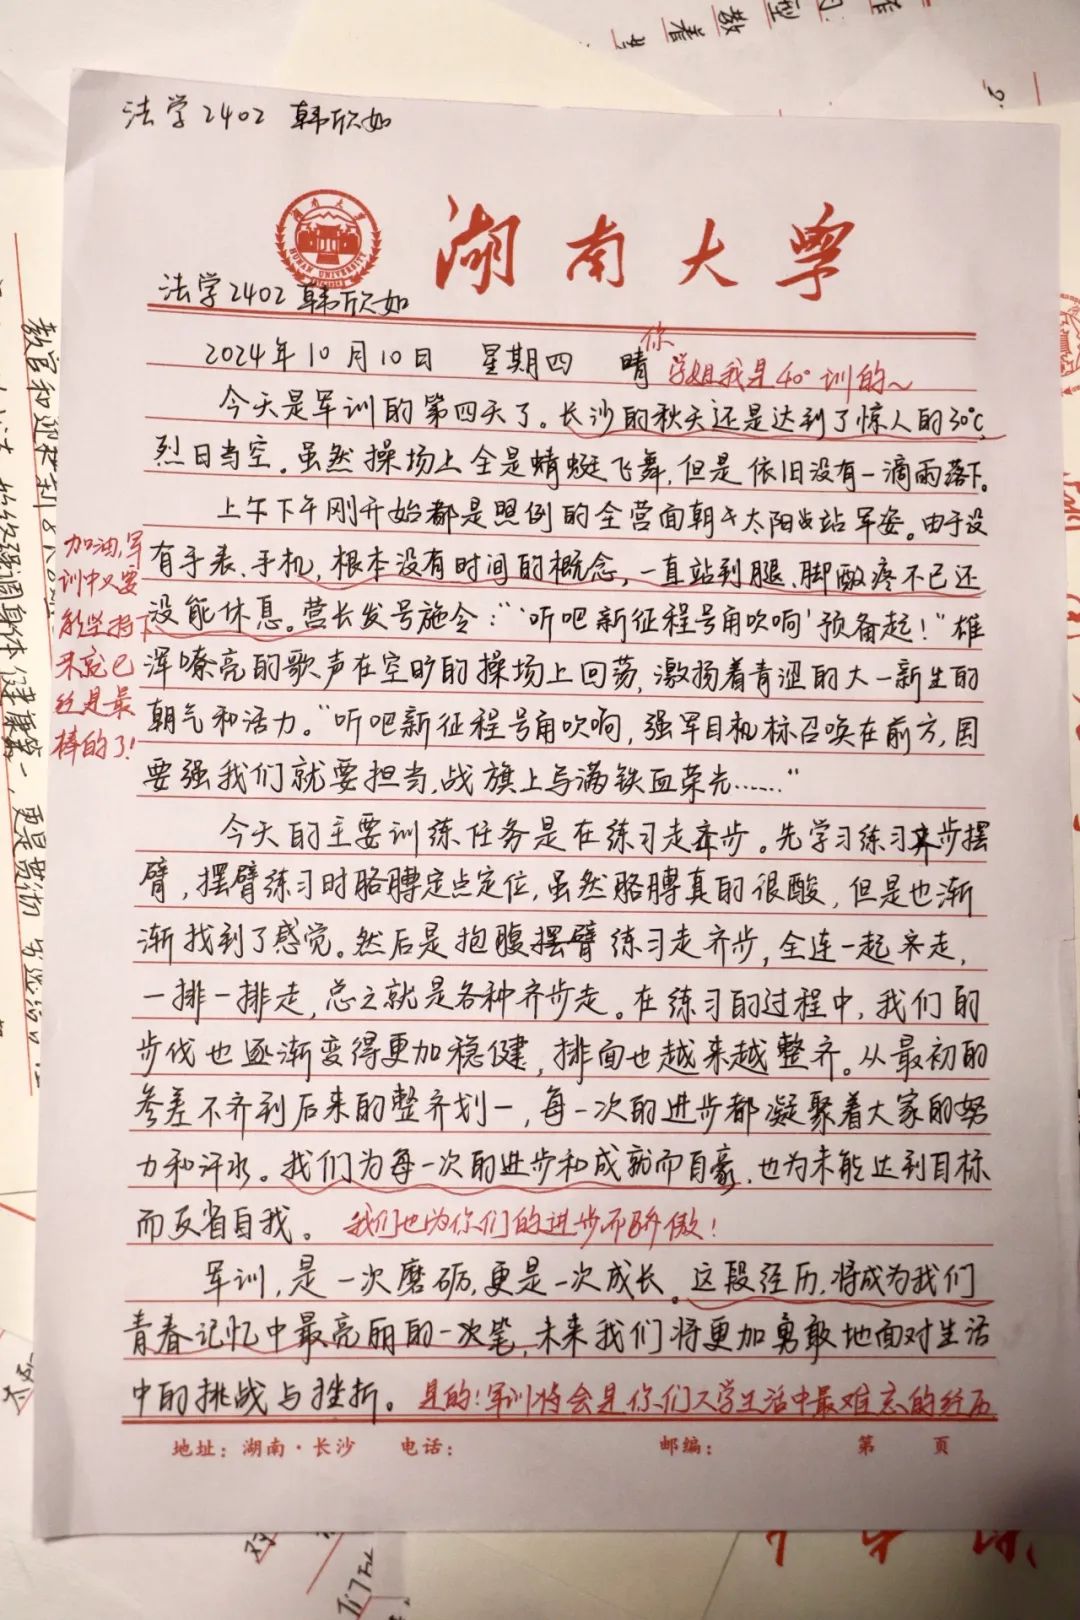 法学2402 韩欣如
湖南大学
HUNAN UNIVERSITY
法学2402 韩欣如
2024年10月10日 星期四 晴
你学姐我是40°训的~
今天是军训的第四天了。长沙的秋天还是达到了惊人的30℃,
烈日当空。虽然操场上全是蜻蜓飞舞,但是依旧没有一滴雨落下。
上午下午刚开始都是照例的全营面朝太阳站军姿。由于没
有手表、手机,根本没有时间的概念,一直站到腿、脚酸疼不已还
没能休息。营长发号施令:“‘听吧新征程号角吹响’预备起!”雄
浑嘹亮的歌声在空旷的操场上回荡,激扬着青涩的大一新生的
朝气和活力。“听吧新征程号角吹响,强军目标召唤在前方,国
要强我们就要担当,战旗上写满铁血荣光……”
加油,军
训中只要
能坚持下
来就已
经是最
棒的了!
今天的主要训练任务是在练习走齐步。先学习练习齐步摆
臂,摆臂练习时胳膊定点定位,虽然胳膊真的很酸,但是也渐
渐找到了感觉。然后是抱腹摆臂练习走齐步,全连一起齐走,
一排一排走,总之就是各种齐步走。在练习的过程中,我们的
步伐也逐渐变得更加稳健,排面也越来越整齐。从最初的
参差不齐到后来的整齐划一,每一次的进步都凝聚着大家的努
力和汗水。我们为每一次的进步和成就而自豪,也为未能达到目标
而反省自我。 我们也为你们的进步而骄傲!
军训,是一次磨砺,更是一次成长。这段经历,将成为我们
青春记忆中最亮丽的一次笔,未来我们将更加勇敢地面对生活
中的挑战与挫折。 是的!军训将会是你们大学生活中最难忘的经历
地址:湖南·长沙 电话: 邮编: 第 页